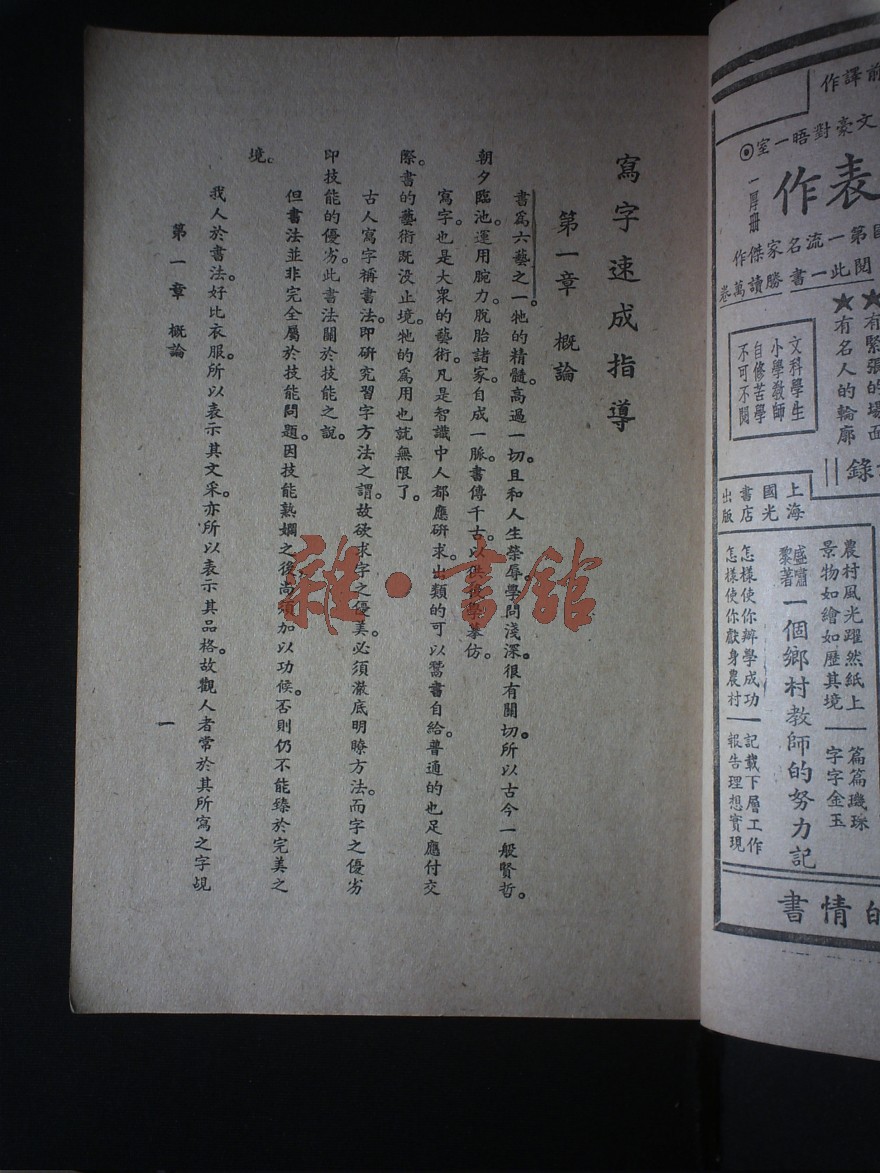 前譯作
文豪對晤一室◉
表作
一厚册
國第一流名家傑作
閱此一書勝讀萬卷
★有緊張的場面
★有名人的輪廓
文科學生
小學教師
自修苦學
不可不閱
錄
上海
國光
書店
出版
農村風光躍然紙上
景物如繪如歷其境
篇篇璣珠
字字金玉
一個鄉村教師的努力記
怎樣使你辦學成功
怎樣使你獻身農村
記載下層工作
報告理想實現
的情書
寫字速成指導
第一章 概論
書爲六藝之一。牠的精髓高過一切。且和人生榮辱。學問淺深。很有關切。所以古今一般賢哲。
朝夕臨池。運用腕力。脫胎諸家。自成一脈。書傳千古。以供後學摹仿。
寫字。也是大衆的藝術。凡是智識中人都應研求。出類的可以鬻書自給。普通的也足應付交
際。書的藝術既没止境。牠的爲用也就無限了。
古人寫字稱書法。即研究習字方法之謂。故欲求字之優美。必須澈底明瞭方法。而字之優劣
印技能的優劣。此書法關於技能之說。
但書法並非完全屬於技能問題。因技能熟嫻之後。尚須加以功候。否則仍不能臻於完美之
境。
我人於書法。好比衣服。所以表示其文采。亦所以表示其品格。故觀人者常於其所寫之字覘
第一章 概論
一
雜·書館